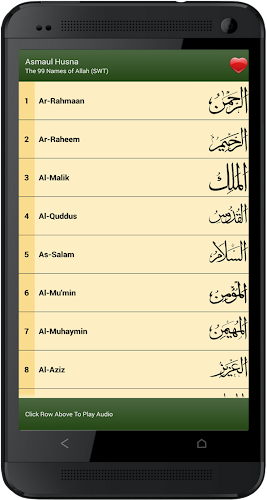 Asmaul Husna
The 99 Names of Allah (SWT)
1 Ar-Rahmaan الرحمن
2 Ar-Raheem الرحيم
3 Al-Malik الملك
4 Al-Quddus القدوس
5 As-Salam السلام
6 Al-Mu'min المؤمن
7 Al-Muhaymin المهيمن
8 Al-Aziz العزيز
Click Row Above To Play Audio